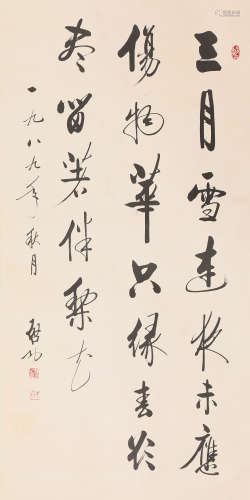 三月雪連夜未應
傷物華只緣春欲
盡留著伴梨花
一九八九年秋月 啟功